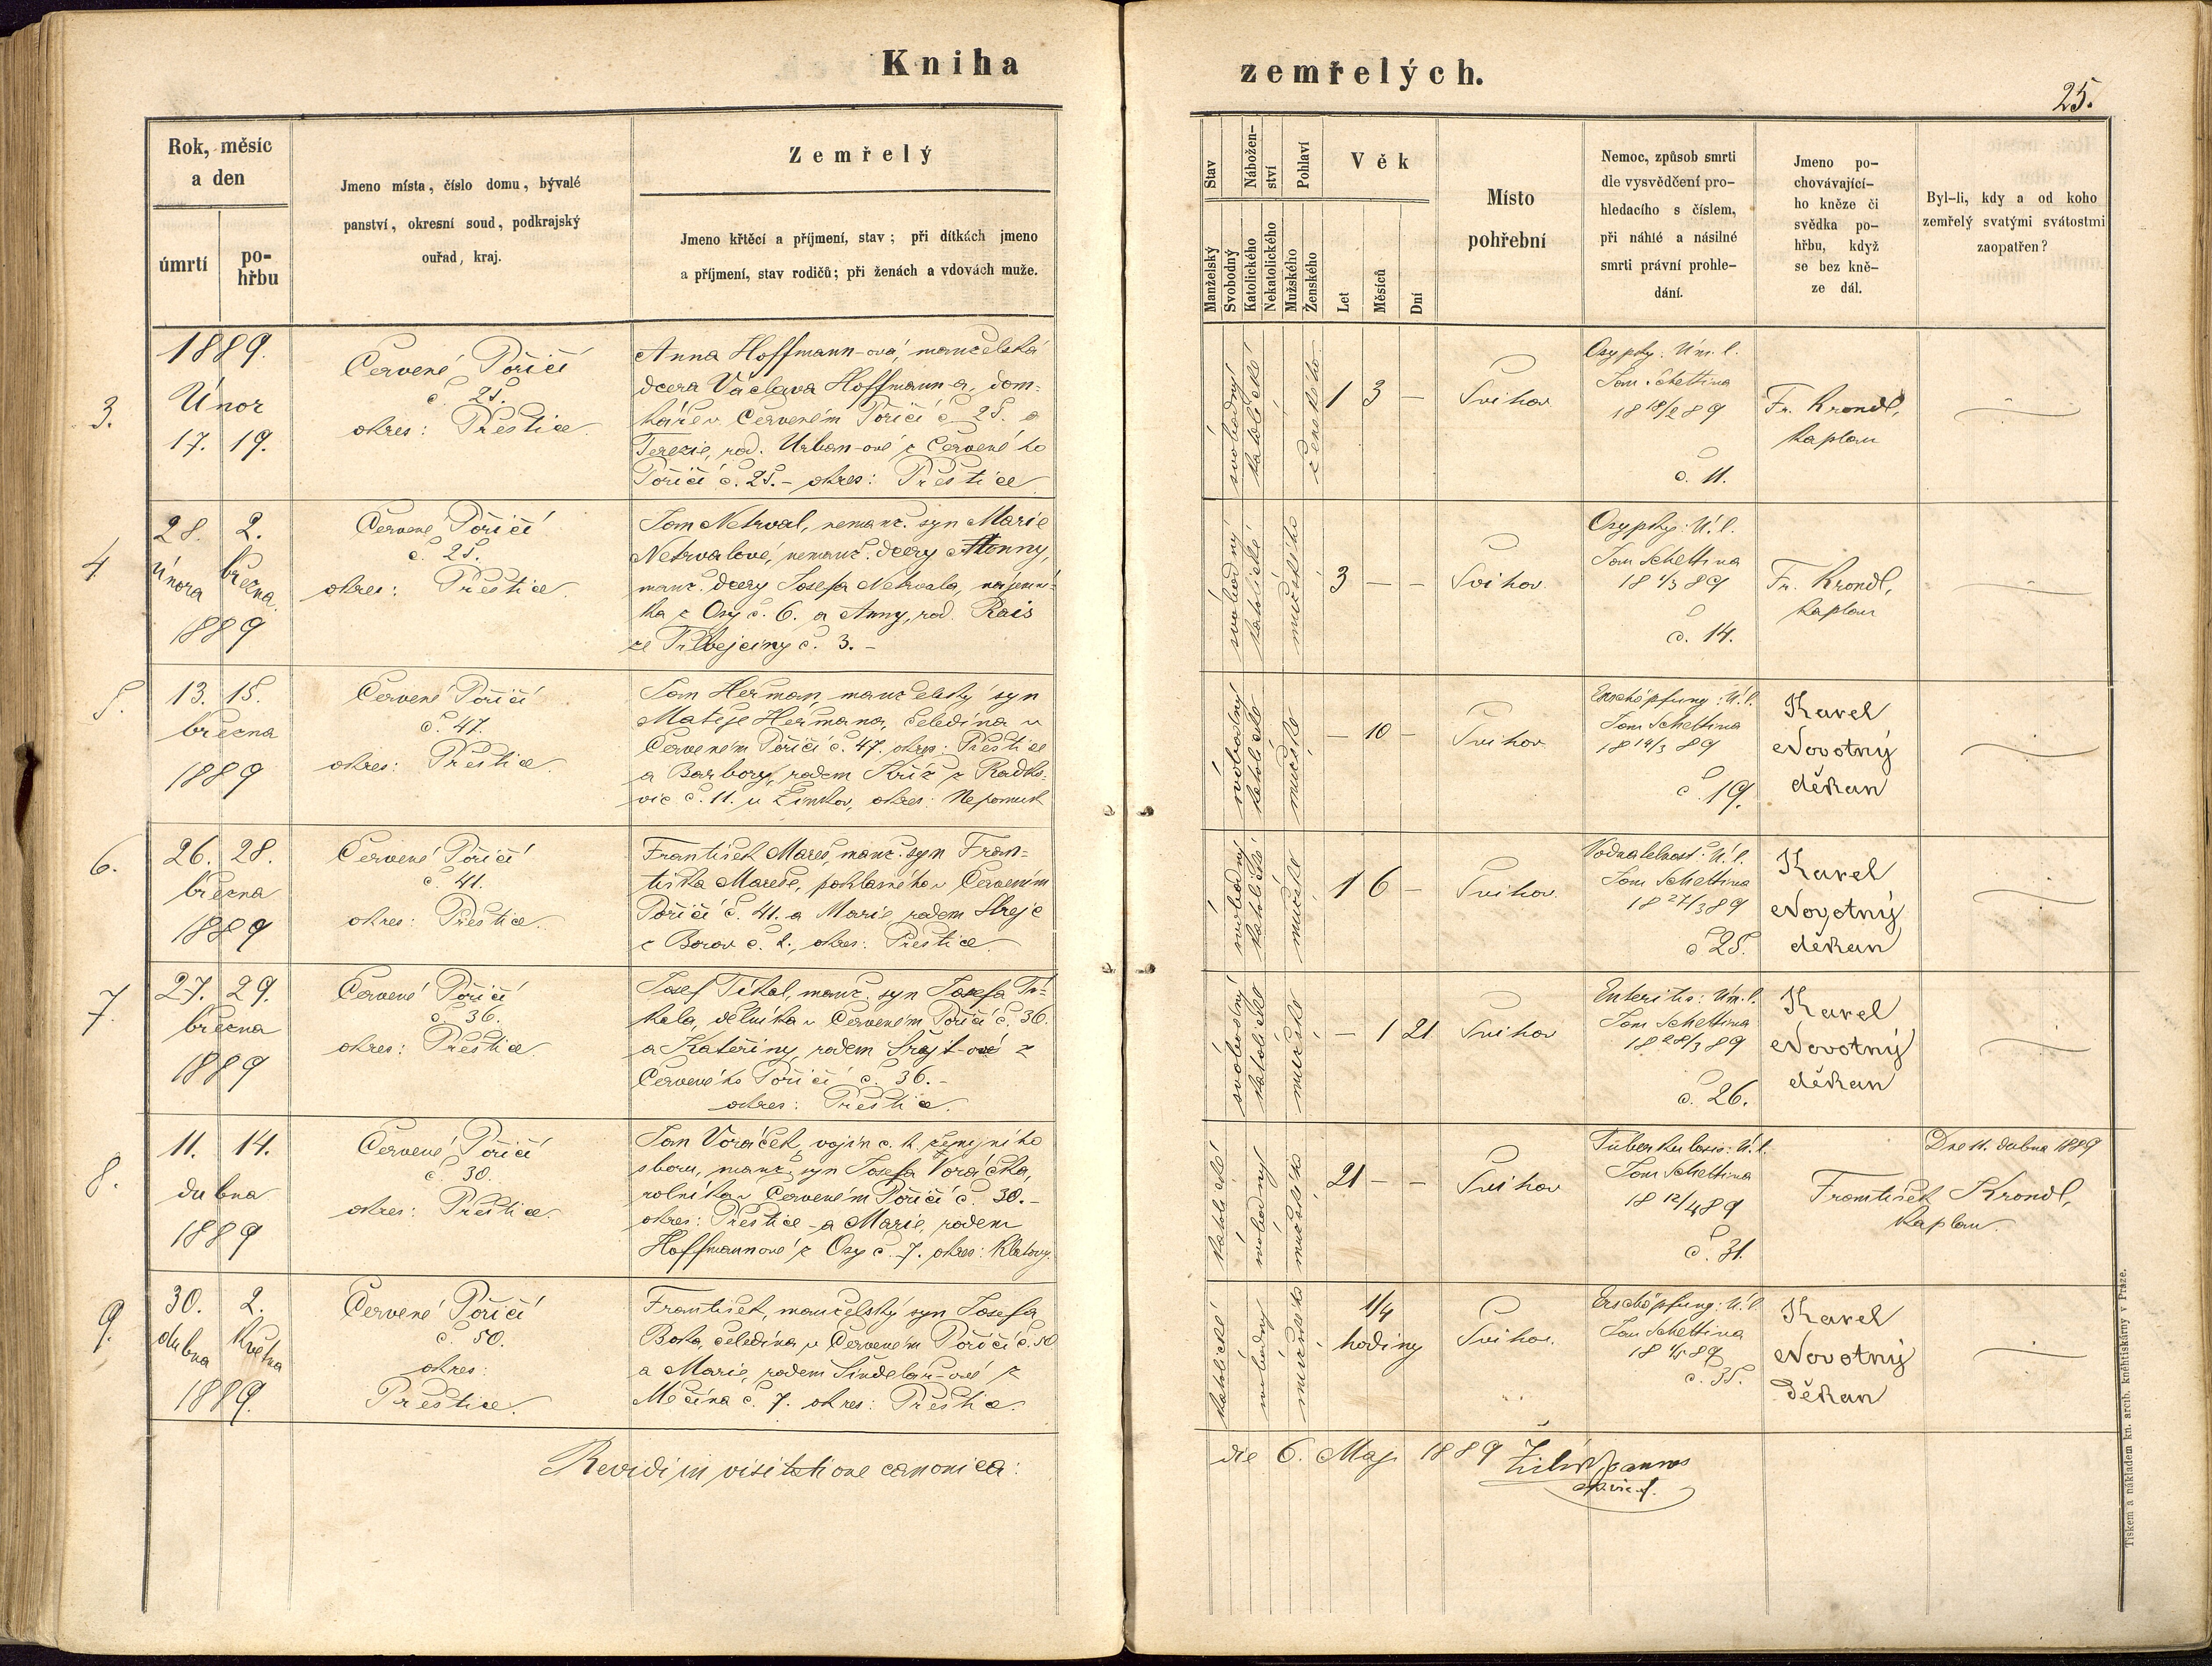 Kniha
zemřelých.
25.
Rok, měsíc
a den
úmrtí
po-
hřbu
Jmeno místa, číslo domu, bývalé
panství, okresní soud, podkrajský
ouřad, kraj.
Zemřelý
Jmeno křtěcí a příjmení, stav; při dítkách jmeno
a příjmení, stav rodičů; při ženách a vdovách muže.
Stav
Nábožen-
ství
Pohlaví
Manželský
Svobodný
Katolického
Nekatolického
Mužského
Ženského
Věk
Let
Měsíců
Dní
Místo
pohřební
Nemoc, způsob smrti
dle vysvědčení pro-
hledacího s číslem,
při náhlé a násilné
smrti právní prohle-
dání.
Jmeno po-
chovávající-
ho kněze či
svědka po-
hřbu, když
se bez kně-
ze dál.
Byl-li, kdy a od koho
zemřelý svatými svátostmi
zaopatřen?
3.
1889.
Únor
17. 19.
Červené Poříčí
č. 25.
okres: Přestice
Anna Hoffmann-ová, manželská
dcera Václava Hoffmann-a, dom-
káře v Červeném Poříčí č. 25. a
Terezie, roz. Urban-ové z Červeného
Poříčí č. 25. - okres: Přestice
svobodný
katolické
ženského
1 3 —
Švihov
Osypky: Úm. l.
Jan Schettina
18 18/2 89
č. 11.
Fr. Krondl,
kaplan
4
28. 2.
února března
1889
Červené Poříčí
č. 25.
okres: Přestice.
Jan Netrval, nemanž. syn Marie
Netrvalové, nemanž. dcery Anny,
manž. dcery Josefa Netrvala, nájemní-
ka z Osy č. 6. a Anny, rod. Rais
č. 3. -
svobodný
katolické
mužského
3 — —
Švihov
Osypky: Ú. l.
Jan Schettina
18 1/3 89
č. 14.
Fr. Krondl,
kaplan
5.
13. 15.
března
1889
Červené Poříčí
č. 47.
okres: Přestice.
Jan Heřman, manželský syn
Matěje Heřmana, čeledína v
Červeném Poříčí č. 47. okres: Přestice
a Barbory, rodem Kříž z Radko-
vic č. 11. u Žinkov, okres: Nepomuk
svobodný
katolické
mužské
— 10 —
Švihov
Erschöpfung: Ú. l.
Jan Schettina
18 14/3 89
č. 19.
Karel
Novotný
děkan
6.
26. 28.
března
1889
Červené Poříčí
č. 41.
okres: Přestice
František Mareš, manž. syn Fran-
tiška Mareše, pohlasného v Červeném
Poříčí č. 41. a Marie, rodem Strejc
z Borov č. 2., okres: Přestice
svobodný
katolické
mužské
1 6 —
Švihov.
Vodnatelnost: Ú. l.
Jan Schettina
18 27/3 89
č. 25.
Karel
Novotný
děkan
7.
27. 29.
března
1889
Červené Poříčí
č. 36.
okres: Přestice
Josef Tikal, manž. syn Josefa Ti-
kala, dělníka v Červeném Poříčí č. 36.
a Kateřiny, rodem Šrajt-ové z
Červeného Poříčí č. 36. -
okres: Přestice.
svobodný
katolické
mužské
— 1 21
Švihov
Enteritis: Úm. l.
Jan Schettina
18 28/3 89
č. 26.
Karel
Novotný
děkan
8.
11. 14.
dubna
1889
Červené Poříčí
č. 30.
okres: Přestice.
Jan Voráček, vojín c. k. zemjního
sboru, manž. syn Josefa Voráčka,
rolníka v Červeném Poříčí č. 30. -
okres: Přestice - a Marie, rodem
Hoffmannové z Osy č. 7. okres: Klatovy.
katolické
svobodný
mužského
21 — —
Švihov
Tuberkulosis: Ú. l.
Jan Schettina
18 12/4 89
č. 31.
Dne 11. dubna 1889
František Krondl,
kaplan.
9.
30. 2.
dubna Května
1889.
Červené Poříčí
č. 50.
okres:
Přestice.
František, manželský syn Josefa
Boka, čeledína v Červeném Poříčí č. 50
a Marie, rodem Šindelář-ové z
Měčína č. 7. okres: Přestice.
katolické
svobodný
mužského
1/4
hodiny
Švihov.
Erschöpfung: Ú. l.
Jan Schettina
18 1/5 89
č. 35.
Karel
Novotný
Děkan
Revidi in visitatione canonica:
die 6. Maj. 1889
Tiskem a nákladem kn. arcib. kněhtiskárny v Praze.